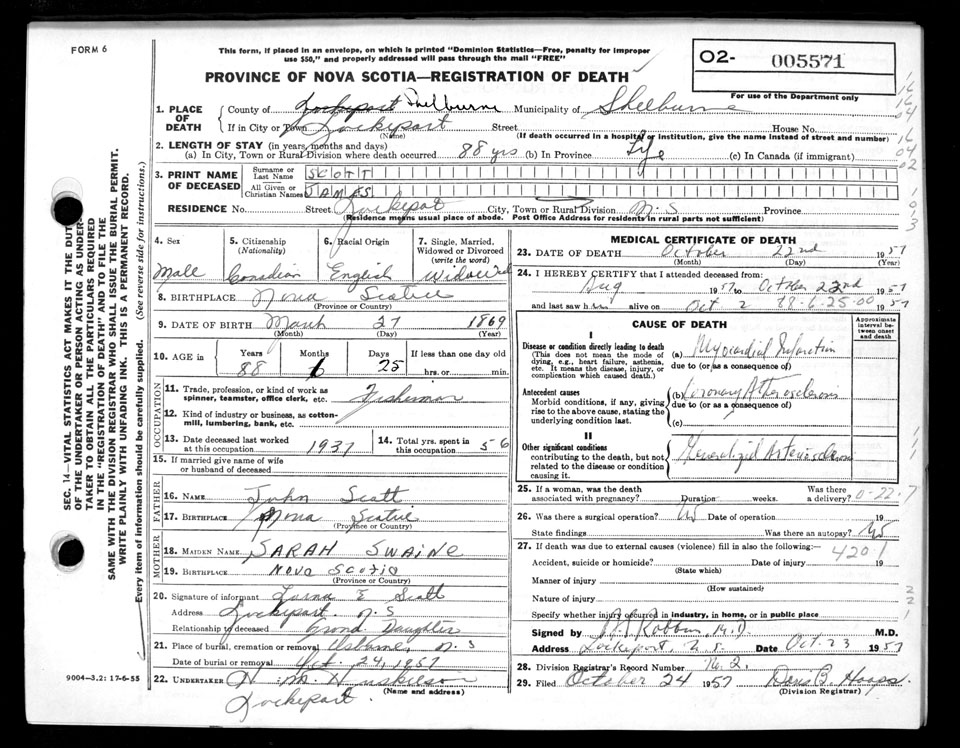 FORM 6
This form, if placed in an envelope, on which is printed "Dominion Statistics—Free, penalty for improper
use $50," and properly addressed will pass through the mail "FREE"
PROVINCE OF NOVA SCOTIA—REGISTRATION OF DEATH
O2- 005571
For use of the Department only
1. PLACE OF DEATH
County of Lockeport Shelburne Municipality of Shelburne
If in City or Town Lockeport Street House No.
(Name) (If death occurred in a hospital or institution, give the name instead of street and number)
2. LENGTH OF STAY (in years, months and days)
(a) In City, Town or Rural Division where death occurred 88 yrs (b) In Province Life (c) In Canada (if immigrant)
3. PRINT NAME OF DECEASED
Surname or Last Name SCOTT
All Given or Christian Names JAMES
RESIDENCE No. Street Lockeport City, Town or Rural Division N.S Province
(Residence means usual place of abode. Post Office Address for residents in rural parts not sufficient)
4. Sex Male
5. Citizenship (Nationality) Canadian
6. Racial Origin English
7. Single, Married, Widowed or Divorced (write the word) Widowed
8. BIRTHPLACE Nova Scotia
(Province or Country)
9. DATE OF BIRTH March 27 1869
(Month) (Day) (Year)
10. AGE in Years 88 Months 6 Days 25 If less than one day old hrs. or min.
OCCUPATION
11. Trade, profession, or kind of work as spinner, teamster, office clerk, etc. Fisherman
12. Kind of industry or business, as cotton-mill, lumbering, bank, etc.
13. Date deceased last worked at this occupation 1937
14. Total yrs. spent in this occupation 56
15. If married give name of wife or husband of deceased
FATHER
16. NAME John Scott
17. BIRTHPLACE Nova Scotia
(Province or Country)
MOTHER
18. MAIDEN NAME SARAH SWAINE
19. BIRTHPLACE Nova Scotia
(Province or Country)
20. Signature of informant Lorna E Scott
Address Lockeport. N.S
Relationship to deceased Grand Daughter
21. Place of burial, cremation or removal Osborne, N.S
Date of burial or removal Oct. 24, 1957
22. UNDERTAKER
(Name and address)
Lockeport.
MEDICAL CERTIFICATE OF DEATH
23. DATE OF DEATH October 22nd 1957
(Month) (Day) (Year)
24. I HEREBY CERTIFY that I attended deceased from:
Aug 1957 to October 22nd 1957
and last saw him alive on Oct 2 1957
CAUSE OF DEATH
Approximate interval between onset and death
I
Disease or condition directly leading to death
(This does not mean the mode of dying, e.g., heart failure, asthenia, etc. It means the disease, injury, or complication which caused death.)
(a) Myocardial Infarction
due to (or as a consequence of)
Antecedent causes
Morbid conditions, if any, giving rise to the above cause, stating the underlying condition last.
(b) Coronary Atherosclerosis
due to (or as a consequence of)
(c)
II
Other significant conditions
contributing to the death, but not related to the disease or condition causing it.
Generalized Arteriosclerosis
25. If a woman, was the death associated with pregnancy? Duration weeks. Was there a delivery?
26. Was there a surgical operation? No Date of operation 19
State findings Was there an autopsy? No
27. If death was due to external causes (violence) fill in also the following:— 4201
Accident, suicide or homicide? Date of injury 19
(State which)
Manner of injury
(How sustained)
Nature of injury
Specify whether injury occurred in industry, in home, or in public place
Signed by M.D.
Address Lockeport, N.S. Date Oct 23 1957
28. Division Registrar's Record Number No. 2.
29. Filed October 24 1957
(Division Registrar)
SEC. 14—VITAL STATISTICS ACT MAKES IT THE DUTY
OF THE UNDERTAKER OR PERSON ACTING AS UNDER-
TAKER TO OBTAIN ALL THE PARTICULARS REQUIRED
IN THE "REGISTRATION OF DEATH" AND TO FILE THE
SAME WITH THE DIVISION REGISTRAR WHO SHALL ISSUE THE BURIAL PERMIT.
WRITE PLAINLY WITH UNFADING INK. THIS IS A PERMANENT RECORD.
Every item of information should be carefully supplied. (See reverse side for instructions.)
9004—3.2: 17-6-55